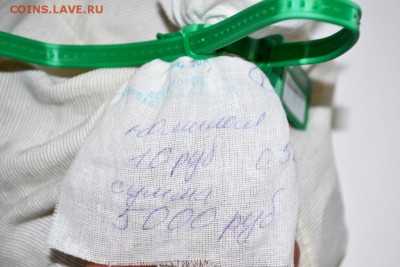 COINS.LAVE.RU
номинал
10 руб 0.5
сумма
5000 руб